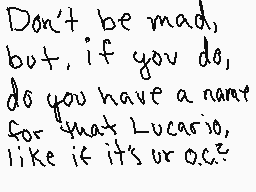 Don't be mad,
but, if you do,
do you have a name
for that Lucario,
like if it's ur o.c?